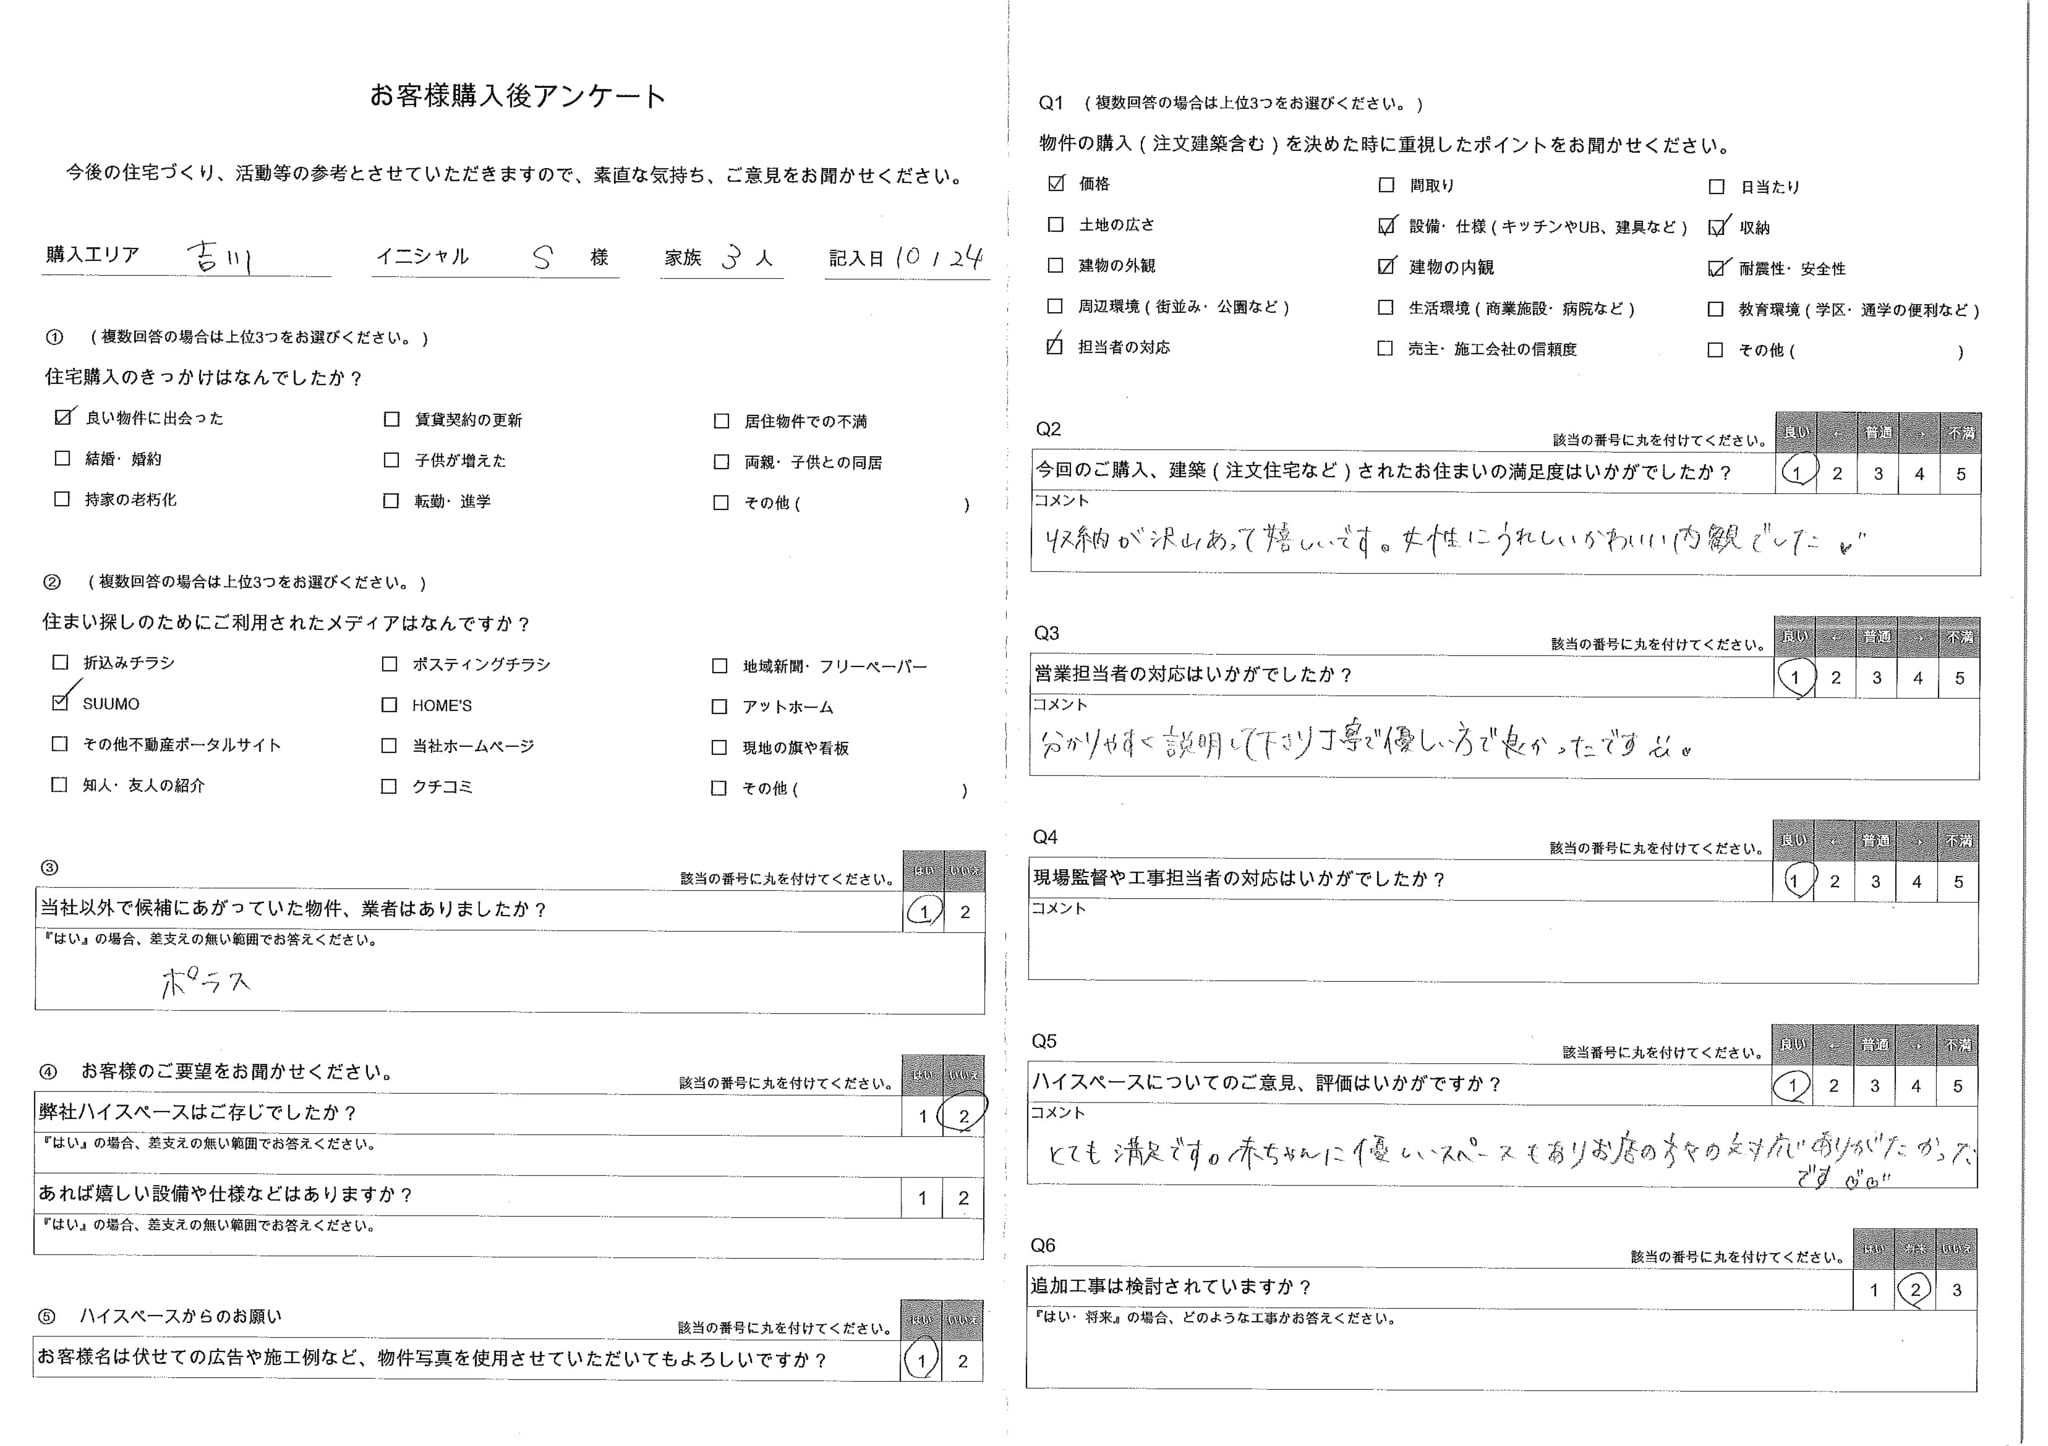 お客様購入後アンケート
今後の住宅づくり、活動等の参考とさせていただきますので、素直な気持ち、ご意見をお聞かせください。
購入エリア 吉川 イニシャル S 様 家族 3 人 記入日 10 / 24
① (複数回答の場合は上位3つをお選びください。)
住宅購入のきっかけはなんでしたか?
☑ 良い物件に出会った □ 賃貸契約の更新 □ 居住物件での不満
□ 結婚・婚約 □ 子供が増えた □ 両親・子供との同居
□ 持家の老朽化 □ 転勤・進学 □ その他 ( )
② (複数回答の場合は上位3つをお選びください。)
住まい探しのためにご利用されたメディアはなんですか?
□ 折込みチラシ □ ポスティングチラシ □ 地域新聞・フリーペーパー
☑ SUUMO □ HOME'S □ アットホーム
□ その他不動産ポータルサイト □ 当社ホームページ □ 現地の旗や看板
□ 知人・友人の紹介 □ クチコミ □ その他 ( )
③ 該当の番号に丸を付けてください。 はい いいえ
当社以外で候補にあがっていた物件、業者はありましたか? 1 2
『はい』の場合、差支えの無い範囲でお答えください。
ポラス
④ お客様のご要望をお聞かせください。 該当の番号に丸を付けてください。 はい いいえ
弊社ハイスペースはご存じでしたか? 1 2
『はい』の場合、差支えの無い範囲でお答えください。
あれば嬉しい設備や仕様などはありますか? 1 2
『はい』の場合、差支えの無い範囲でお答えください。
⑤ ハイスペースからのお願い 該当の番号に丸を付けてください。 はい いいえ
お客様名は伏せての広告や施工例など、物件写真を使用させていただいてもよろしいですか? 1 2
Q1 (複数回答の場合は上位3つをお選びください。)
物件の購入(注文建築含む)を決めた時に重視したポイントをお聞かせください。
☑ 価格 □ 間取り □ 日当たり
□ 土地の広さ ☑ 設備・仕様(キッチンやUB、建具など) ☑ 収納
□ 建物の外観 ☑ 建物の内観 ☑ 耐震性・安全性
□ 周辺環境(街並み・公園など) □ 生活環境(商業施設・病院など) □ 教育環境(学区・通学の便利など)
☑ 担当者の対応 □ 売主・施工会社の信頼度 □ その他 ( )
Q2 該当の番号に丸を付けてください。 良い ← 普通 → 不満
今回のご購入、建築(注文住宅など)されたお住まいの満足度はいかがでしたか? 1 2 3 4 5
コメント
収納が沢山あって嬉しいです。女性にうれしいかわいい内観でした
Q3 該当の番号に丸を付けてください。 良い ← 普通 → 不満
営業担当者の対応はいかがでしたか? 1 2 3 4 5
コメント
分かりやすく説明して下さり丁寧で優しい方で良かったです
Q4 該当の番号に丸を付けてください。 良い ← 普通 → 不満
現場監督や工事担当者の対応はいかがでしたか? 1 2 3 4 5
コメント
Q5 該当番号に丸を付けてください。 良い ← 普通 → 不満
ハイスペースについてのご意見、評価はいかがですか? 1 2 3 4 5
コメント
とても満足です。赤ちゃんに優しいスペースもありお店の方々の対応がありがたかった
です
Q6 該当の番号に丸を付けてください。 はい 将来 いいえ
追加工事は検討されていますか? 1 2 3
『はい・将来』の場合、どのような工事かお答えください。